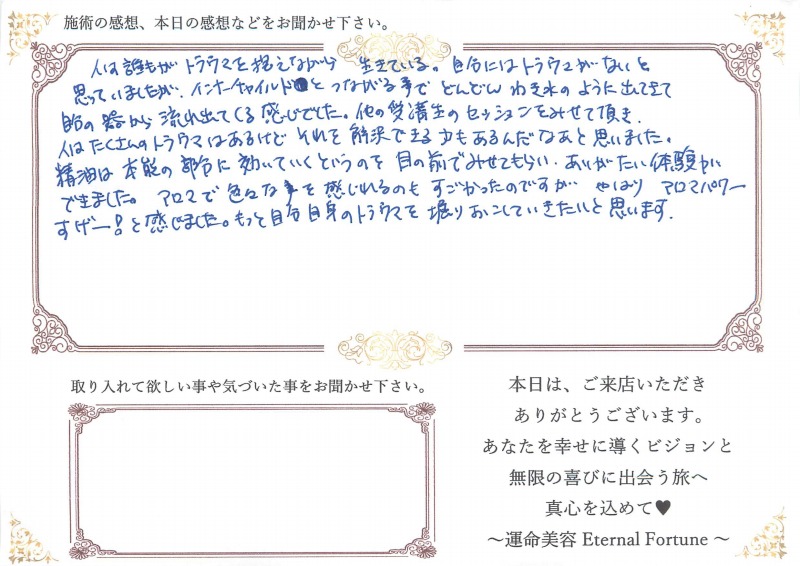 施術の感想、本日の感想などをお聞かせ下さい。
人は誰もがトラウマを抱えながら 生きている。自分にはトラウマがないと
思っていましたが、インナーチャイルドとつながる事で どんどん わき水のように出てきて
自分の器から 流れ出てくる感じでした。他の受講生のセッションをみせて頂き、
人はたくさんのトラウマはあるけど それを 解決できる力もあるんだなあと思いました。
精油は 本能の部分に 効いていくというのを 目の前でみせてもらい、ありがたい体験が
できました。アロマで色々な事を感じれるのも すごかったのですが やはり アロマパワー
すげー!と感じました。もっと自分自身のトラウマを 堀りおこしていきたいと思います。
取り入れて欲しい事や気づいた事をお聞かせ下さい。
本日は、ご来店いただき
ありがとうございます。
あなたを幸せに導くビジョンと
無限の喜びに出会う旅へ
真心を込めて♥
～運命美容 Eternal Fortune ～